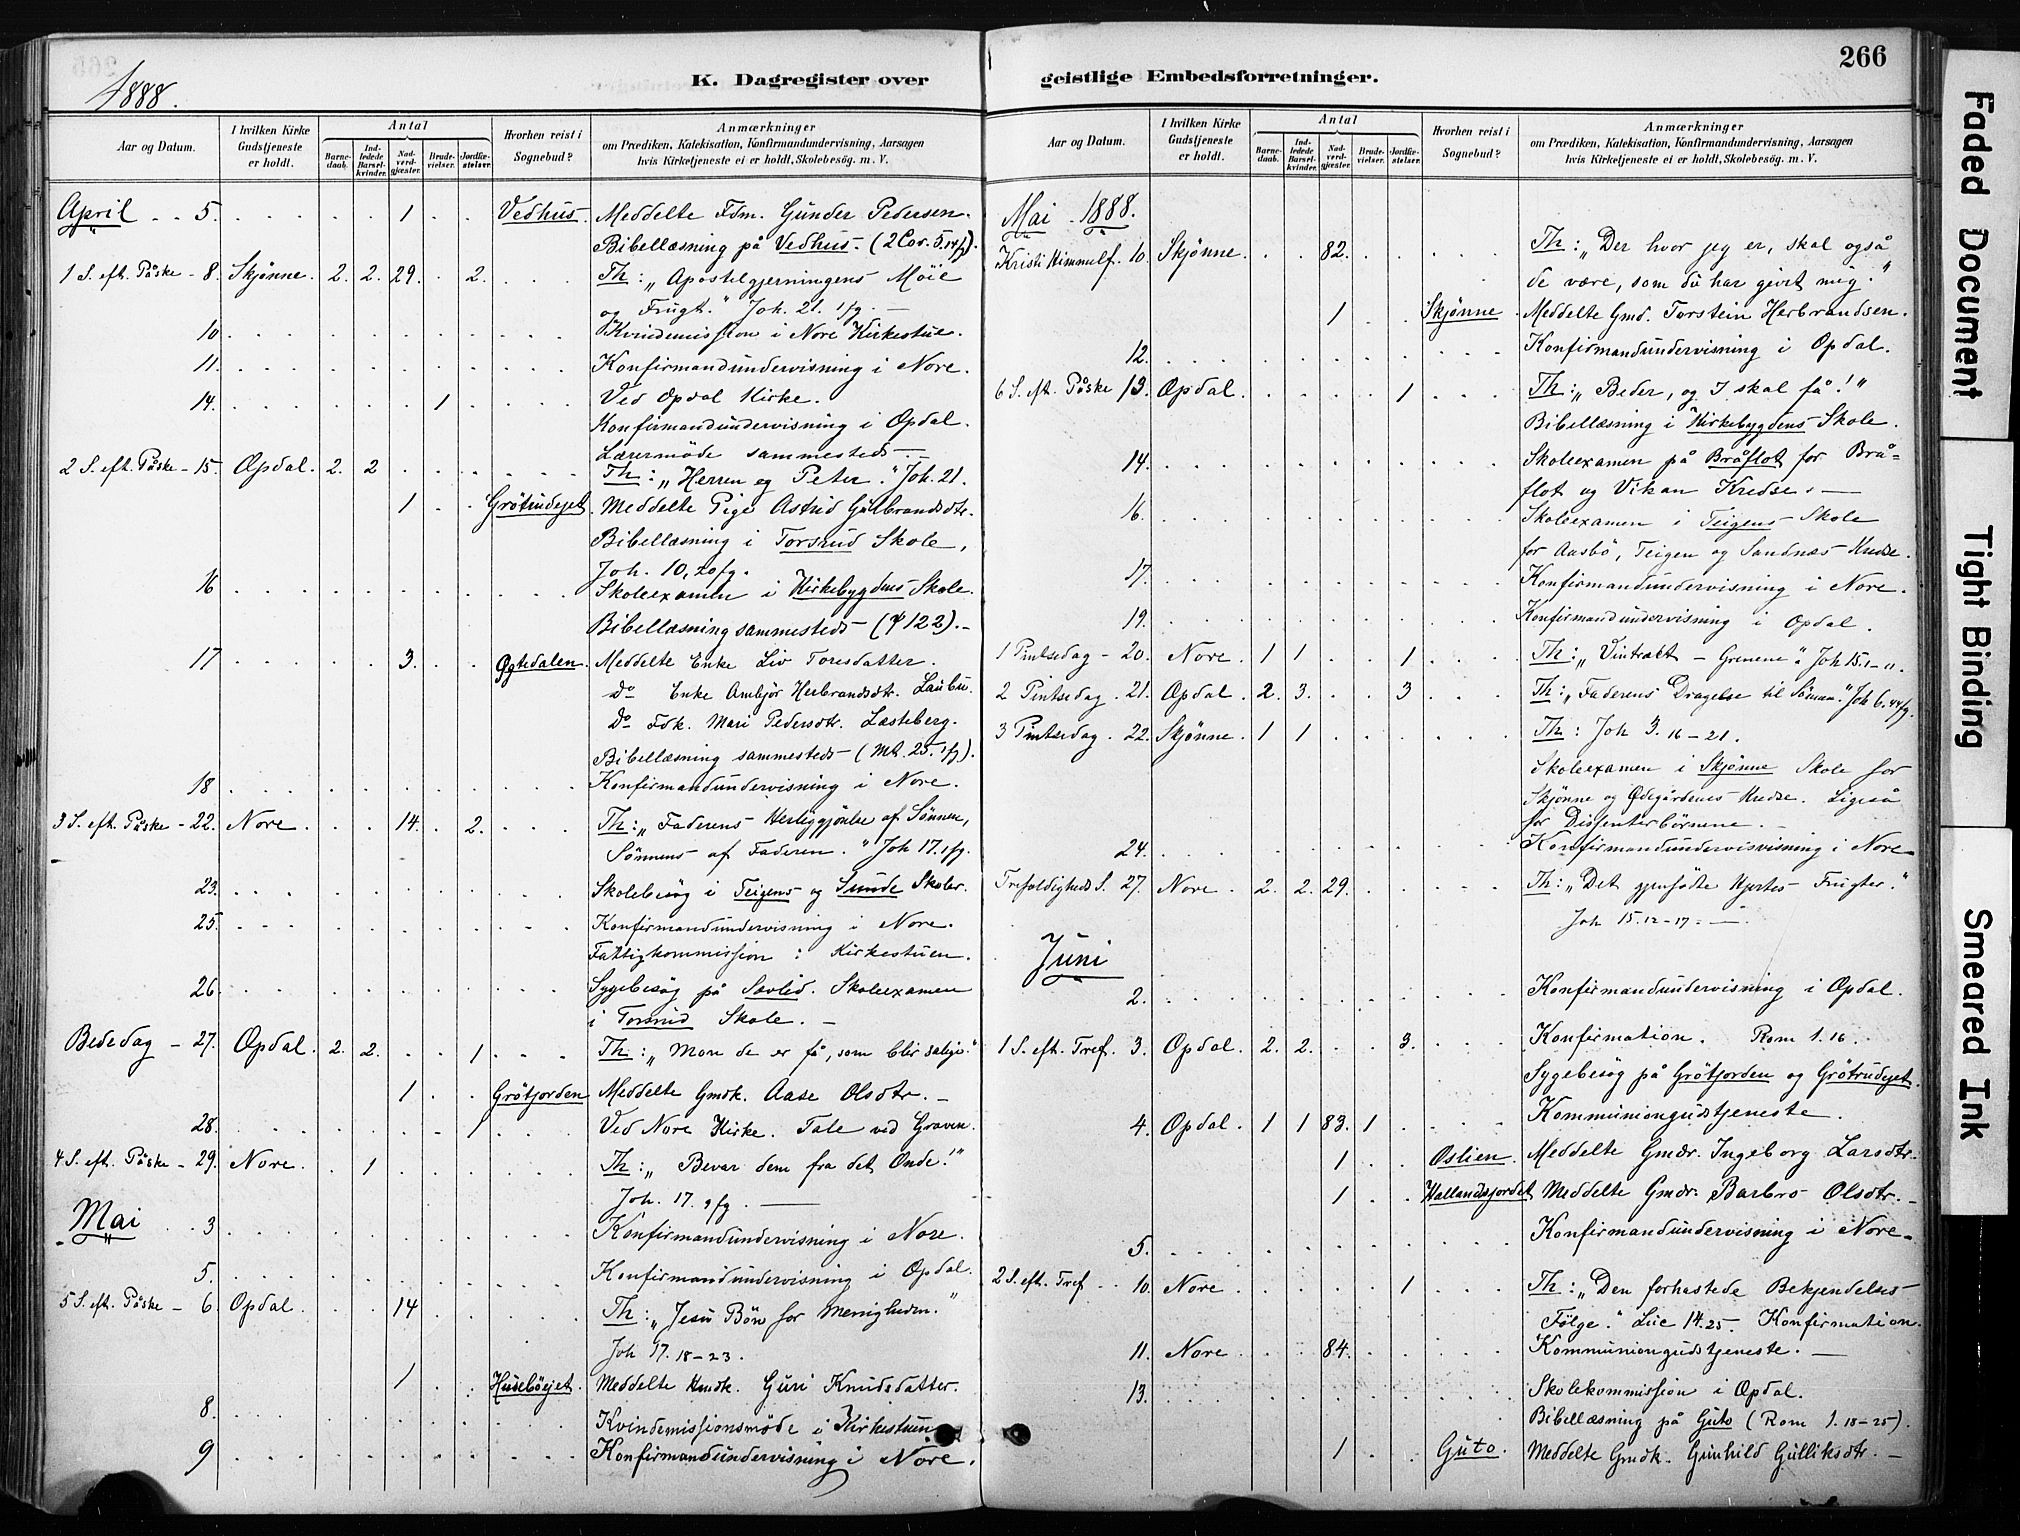 266
K. Dagregister over
1888.
Aar og Datum.
I hvilken Kirke Gudstjeneste er holdt.
Antal
Barnedaab.
Indledede Barselkvinder.
Nadverdgjæster.
Brudevielser.
Jordfæstelser.
Hvorhen reist i Sognebud?
Anmærkninger
om Prædiken, Katekisation, Konfirmandundervisning, Aarsagen
hvis Kirketjeneste ei er holdt, Skolebesøg. m. V.
April . . 5. 1 . . Vedhus. Meddelte Fdm. Gunder Pedersen.
Bibellæsning på Vedhus. (2 Cor. 5.14fg).
1 S. eft. Påske - 8. Skjønne. 2. 2. 29. . 2. Th: „Apostelgjerningens Møie
og Frugt." Joh. 21. 1fg. —
10 Kvindemission i Nore Kirkestue.
11. Konfirmandundervisning i Nore.
14. 1 Ved Opdal Kirke.
Konfirmandundervisning i Opdal.
Lærermöde sammesteds —
2 S. eft. Påske - 15. Opdal. 2. 2 Th: „Herren og Peter." Joh. 21.
1 . . Grötrudejet. Meddelte Pige Astrid Gulbrandsdtr.
Bibellæsning i Torsrud Skole,
Joh. 10, 20fg.
16 Skoleexamen i Kirkebygdens Skole.
Bibellæsning sammesteds (ψ 122). —
17 3. . . Øgtedalen. Meddelte Enke Liv Toresdatter.
Do Enke Ambjör Herbrandsdtr. Laubu.
Do Fdk. Mari Pedersdtr. Læsteberg.
Bibellæsning sammesteds (Mt. 25. 1fg).
18 Konfirmandundervisning i Nore.
3 S. eft. Påske - 22. Nore. 14. . 2. Th: „Faderens Herliggjörelse af Sönnen,
Sönnens af Faderen." Joh 17. 1fg.
23. Skolebesög i Teigens og Sunde Skoler.
25. Konfirmandundervisning i Nore.
Fattigkommission i Kirkestuen.
26. Sygebesög på Sævlid. Skoleexamen
i Torsrud Skole. —
Bededag - 27. Opdal. 2. 2. . . 1 Th: „Mon de er få, som blir salige."
1 . . Grötjorden Meddelte Gmdk. Aase Olsdtr. —
28. 1 Ved Nore Kirke. Tale ved Graven.
4 S. eft. Påske - 29. Nore. . 1 Th: „Bevar dem fra det Onde!"
Joh. 17. 9fg. —
Mai . . 3 Konfirmandundervisning i Nore.
5. Konfirmandundervisning i Opdal.
5 S. eft. Påske - 6. Opdal. 14 Th: „Jesu Bön for Menigheden."
Joh 17. 18-23.
1 . . Huseböejet. Meddelte Kmdk. Guri Knudsdatter.
8. Kvindemissionsmöde i Kirkestuen
9 Konfirmandundervisning i Nore.
geistlige Embedsforretninger.
Aar og Datum.
I hvilken Kirke Gudstjeneste er holdt.
Antal
Barnedaab.
Indledede Barselkvinder.
Nadverdgjæster.
Brudevielser.
Jordfæstelser.
Hvorhen reist i Sognebud?
Anmærkninger
om Prædiken, Katekisation, Konfirmandundervisning, Aarsagen
hvis Kirketjeneste ei er holdt, Skolebesøg. m. V.
Mai . 1888.
Kristi Himmelf. 10. Skjønne. 82. Th: „Der hvor jeg er, skal også
de være, som du har givet mig."
1 . . Skjønne. Meddelte Gmd. Torstein Herbrandsen.
12. Konfirmandundervisning i Opdal.
6 S. eft. Påske 13. Opdal. 1 Th: „Beder, og I skal få!"
Bibellæsning i Kirkebygdens Skole.
14. Skoleexamen på Bråflot for Brå-
flot og Vikan Kredse. —
16. Skoleexamen i Teigens Skole
for Aasbö, Teigen og Sandnæs Kredse.
17. Konfirmandundervisning i Nore.
19. Konfirmandundervisning i Opdal.
1 Pintsedag - 20. Nore. 1 1 . . 1 Th: „Vintræet - Grenene." Joh 15. 1-11.
2 Pintsedag . 21. Opdal. 2. 3. . . 3 Th: „Faderens Dragelse til Sönnen." Joh 6. 44fg.
3 Pintsedag . 22. Skjønne. 1 1 Th: Joh 3. 16-21.
Skoleexamen i Skjønne Skole for
Skjønne og Ødegårdenes Kredse. Ligeså
for Dissenterbörnene. —
24. Konfirmandundervisvisning i Nore
Trefoldigheds S. 27. Nore. 2. 2. 29. Th: „Det gjenfödte Hjertes Frugter."
Joh 15. 12-17. —
Juni
2. Konfirmandundervisning i Opdal.
1 S. eft. Tref. 3. Opdal. 2. 2. . . 3. Konfirmation. Rom 1. 16.
Sygebesög på Grötjorden og Grötrudejet.
4. Opdal. 1 1 83. 1 Kommuniongudstjeneste.
1 . . Oslien. Meddelte Gmdr. Ingeborg Larsdtr.
1 . . Hallandsjordet Meddelte Gmdr. Barbro Olsdtr. —
5. Konfirmandundervisning i Nore.
2 S. eft. Tref . . 10. Nore. 1 Th: „Den forhastede Bekjendelses
Følge." Luc 14. 25. Konfirmation.
11. Nore. 84. Kommuniongudstjeneste. —
13. Skolekommission i Opdal.
Bibellæsning på Guto (Rom 1. 18-25).
1 . . Guto. Meddelte Gmdk. Gunhild Gulliksdtr. —
Faded Document
Tight Binding
Smeared Ink